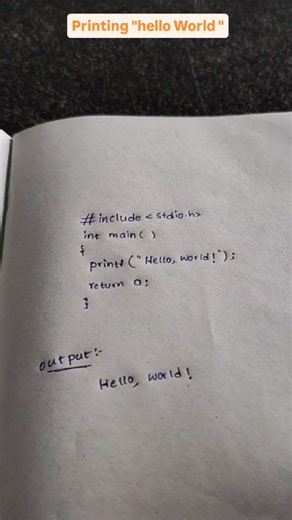 Printing "hello World "
#include <stdio.h>
int main( )
{
printf ("Hello, world!");
return 0;
}
output:-
Hello, world!